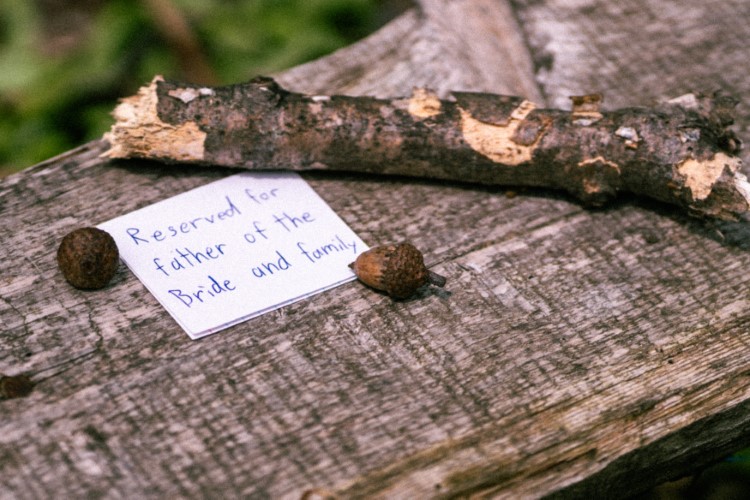 Reserved for
father of the
Bride and family